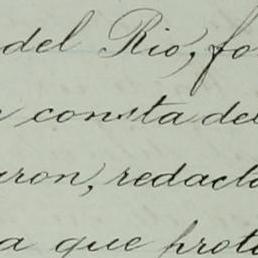 del Rio, fo
consta del
aron, redacta
a que proto